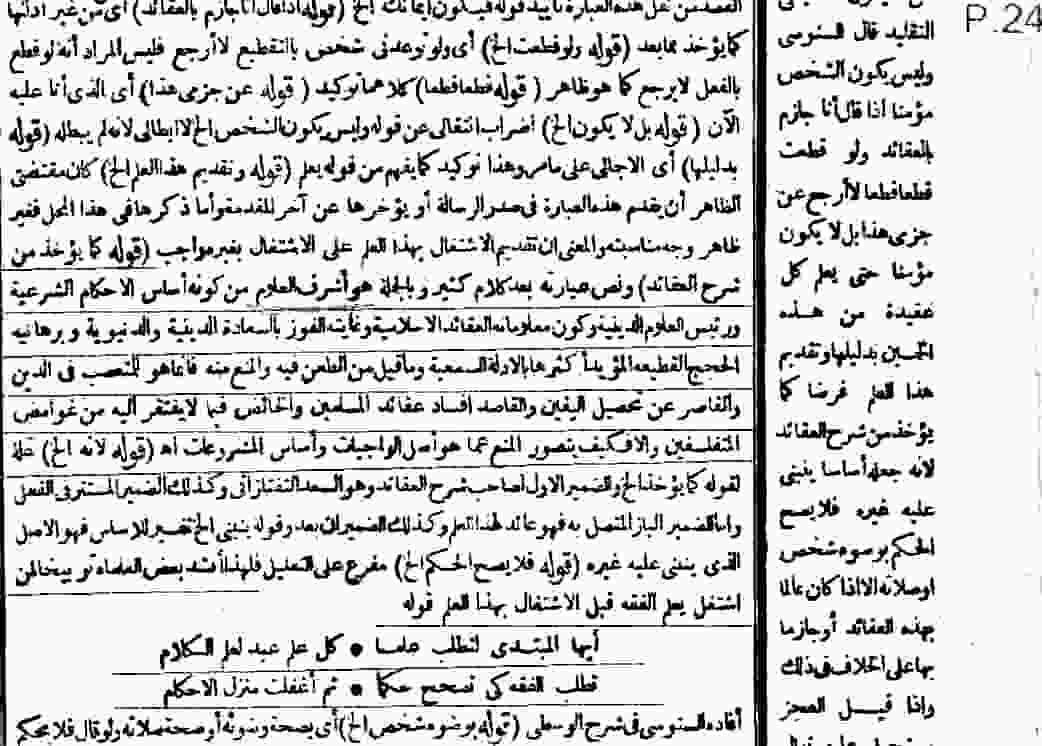 P.24
التقليد قال السنوسى
وليس يكون الشخص
مؤمنا اذا قال أنا جازم
بالعقائد ولو قطعت
قطعا قطعا لاأرجع عن
جزمى هذا بل لا يكون
مؤمنا حتى يعلم كل
عقيدة من هذه
الخمسين بدليلها وتقديم
هذا العلم فرضا كما
يؤخذ من شرح العقائد
لانه جعله أساسا ينبنى
عليه غيره فلا يصح
الحكم بوضوء شخص
او صلاته الا اذا كان عالما
بهذه العقائد أو جازما
بها على الخلاف فى ذلك
واذا قيل العجز
القصد من نقل هذه العبارة تأييد قوله فيكون ايمانك الخ (قوله اذا قال أنا جازم بالعقائد) أى من غير أدلتها
كما يؤخذ مما بعد (قوله ولو قطعت الخ) أى ولو توعدنى شخص بالتقطيع لا أرجع فليس المراد أنه لو قطع
بالفعل لا يرجع كما هو ظاهر (قوله قطعا قطعا) كلاهما توكيد (قوله عن جزمى هذا) أى الذى أنا عليه
الآن (قوله بل لا يكون الخ) اضراب انتقالى عن قوله وليس يكون الشخص الخ لا ابطالى لانه لم يبطله (قوله
بدليلها) أى الاجمالى على ما مر وهذا توكيد كما يفهم من قوله يعلم (قوله وتقديم هذا العلم الخ) كان مقتضى
الظاهر أن يقدم هذه العبارة فى صدر الرسالة أو يؤخرها عن آخر المقدمة وأما ذكرها فى هذا المحل فغير
ظاهر وجه مناسبته والمعنى ان تقديم الاشتغال بهذا العلم على الاشتغال بغيره واجب (قوله كما يؤخذ من
شرح العقائد) ونص عبارته بعد كلام كثير وبالجملة هو أشرف العلوم من كونه أساس الاحكام الشرعية
ورئيس العلوم الدينية وكون معلوماته العقائد الاسلامية وغايته الفوز بالسعادة الدينية والدنيوية وبرهانيه
الحجج القطيعه المؤيد أكثرها بالادلة السمعية وما قيل من الطعن فيه والمنع منه فانما هو للمتعصب فى الدين
والقاصر عن تحصيل اليقين والقاصد افساد عقائد المسلمين والخائض فيما لا يفتقر اليه من غوامض
المتفلسفين والا فكيف يتصور المنع عما هو أصل الواجبات وأساس المشروعات اه (قوله لانه الخ) علة
لقوله كما يؤخذ الخ والضمير الاول لصاحب شرح العقائد وهو السعد التفتازانى وكذلك الضمير المستتر فى الفعل
واما الضمير البارز المتصل به فهو عائد لهذا العلم وكذلك الضميران بعد وقوله ينبنى الخ تفسير للاساس فهو الاصل
الذى ينبنى عليه غيره (قوله فلا يصح الحكم الخ) مفرع على التعليل فلهذا أنشد بعض العلماء توبيخا لمن
اشتغل بعلم الفقه قبل الاشتغال بهذا العلم قوله
أيها المبتدى لتطلب علما • كل علم عبد لعلم الكلام
تطلب الفقه كى تصحح حكما • ثم أغفلت منزل الاحكام
أفاده السنوسى فى شرح الوسطى (قوله بوضوء شخص الخ) أى بصحة وضوئه أو صحة صلاته ولو قال فلا يحكم